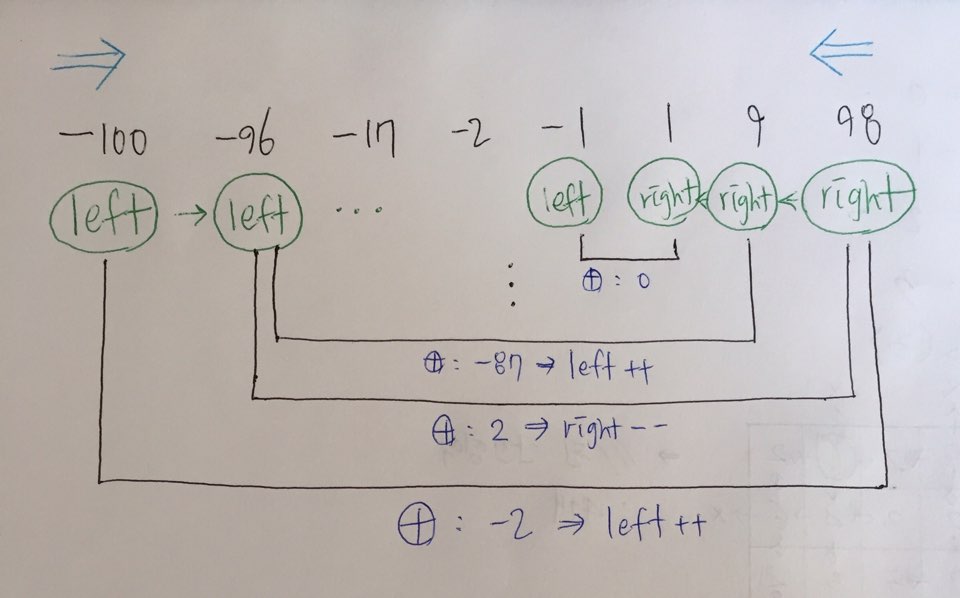 ⇒ ⇐
-100 -96 -17 -2 -1 1 9 98
left → left ... left right ← right ← right
⊕ : 0
⊕ : -87 ⇒ left ++
⊕ : 2 ⇒ right --
⊕ : -2 ⇒ left ++